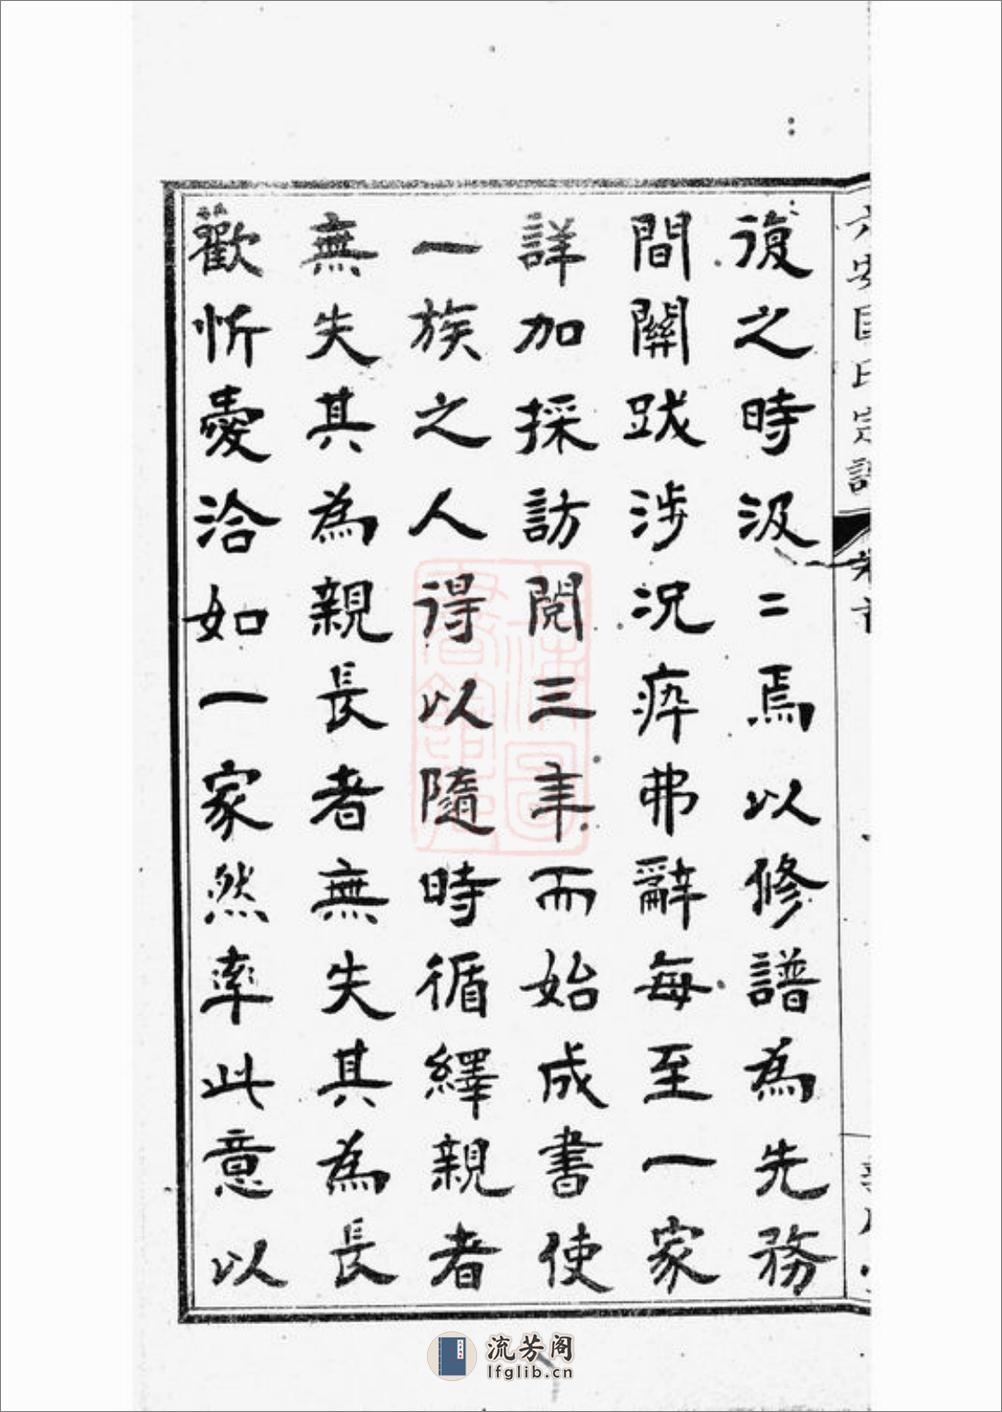 復之時汲二焉以修譜為先務
間關跋涉況瘁弗辭每至一家
詳加採訪閱三年而始成書使
一族之人得以隨時循繹親者
無失其為親長者無失其為長
歡忻憂洽如一家然率此意以
流芳阁
lfglib.cn